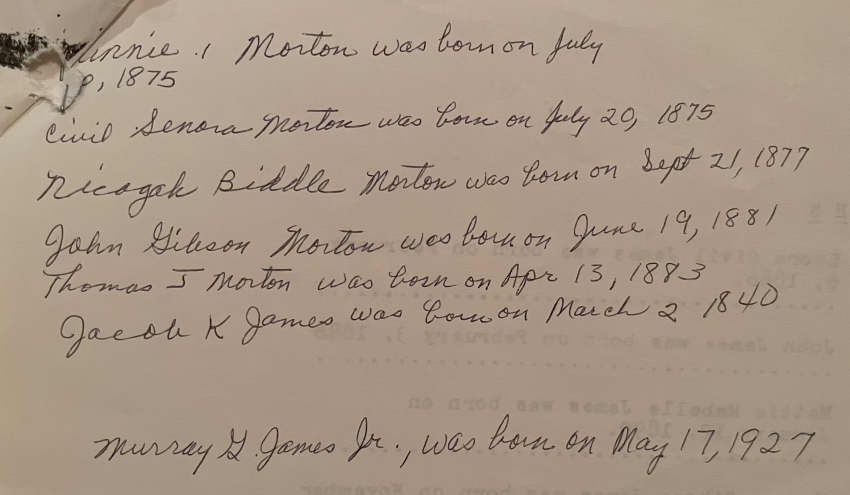 Morton was born on July
, 1875
Civil Senora Morton was born on July 20, 1875
Nicagah Biddle Morton was born on Sept 21, 1877
John Gibson Morton was born on June 19, 1881
Thomas J Morton was born on Apr 13, 1883
Jacob K James was born on March 2 1840
Murray G. James Jr., was born on May 17, 1927